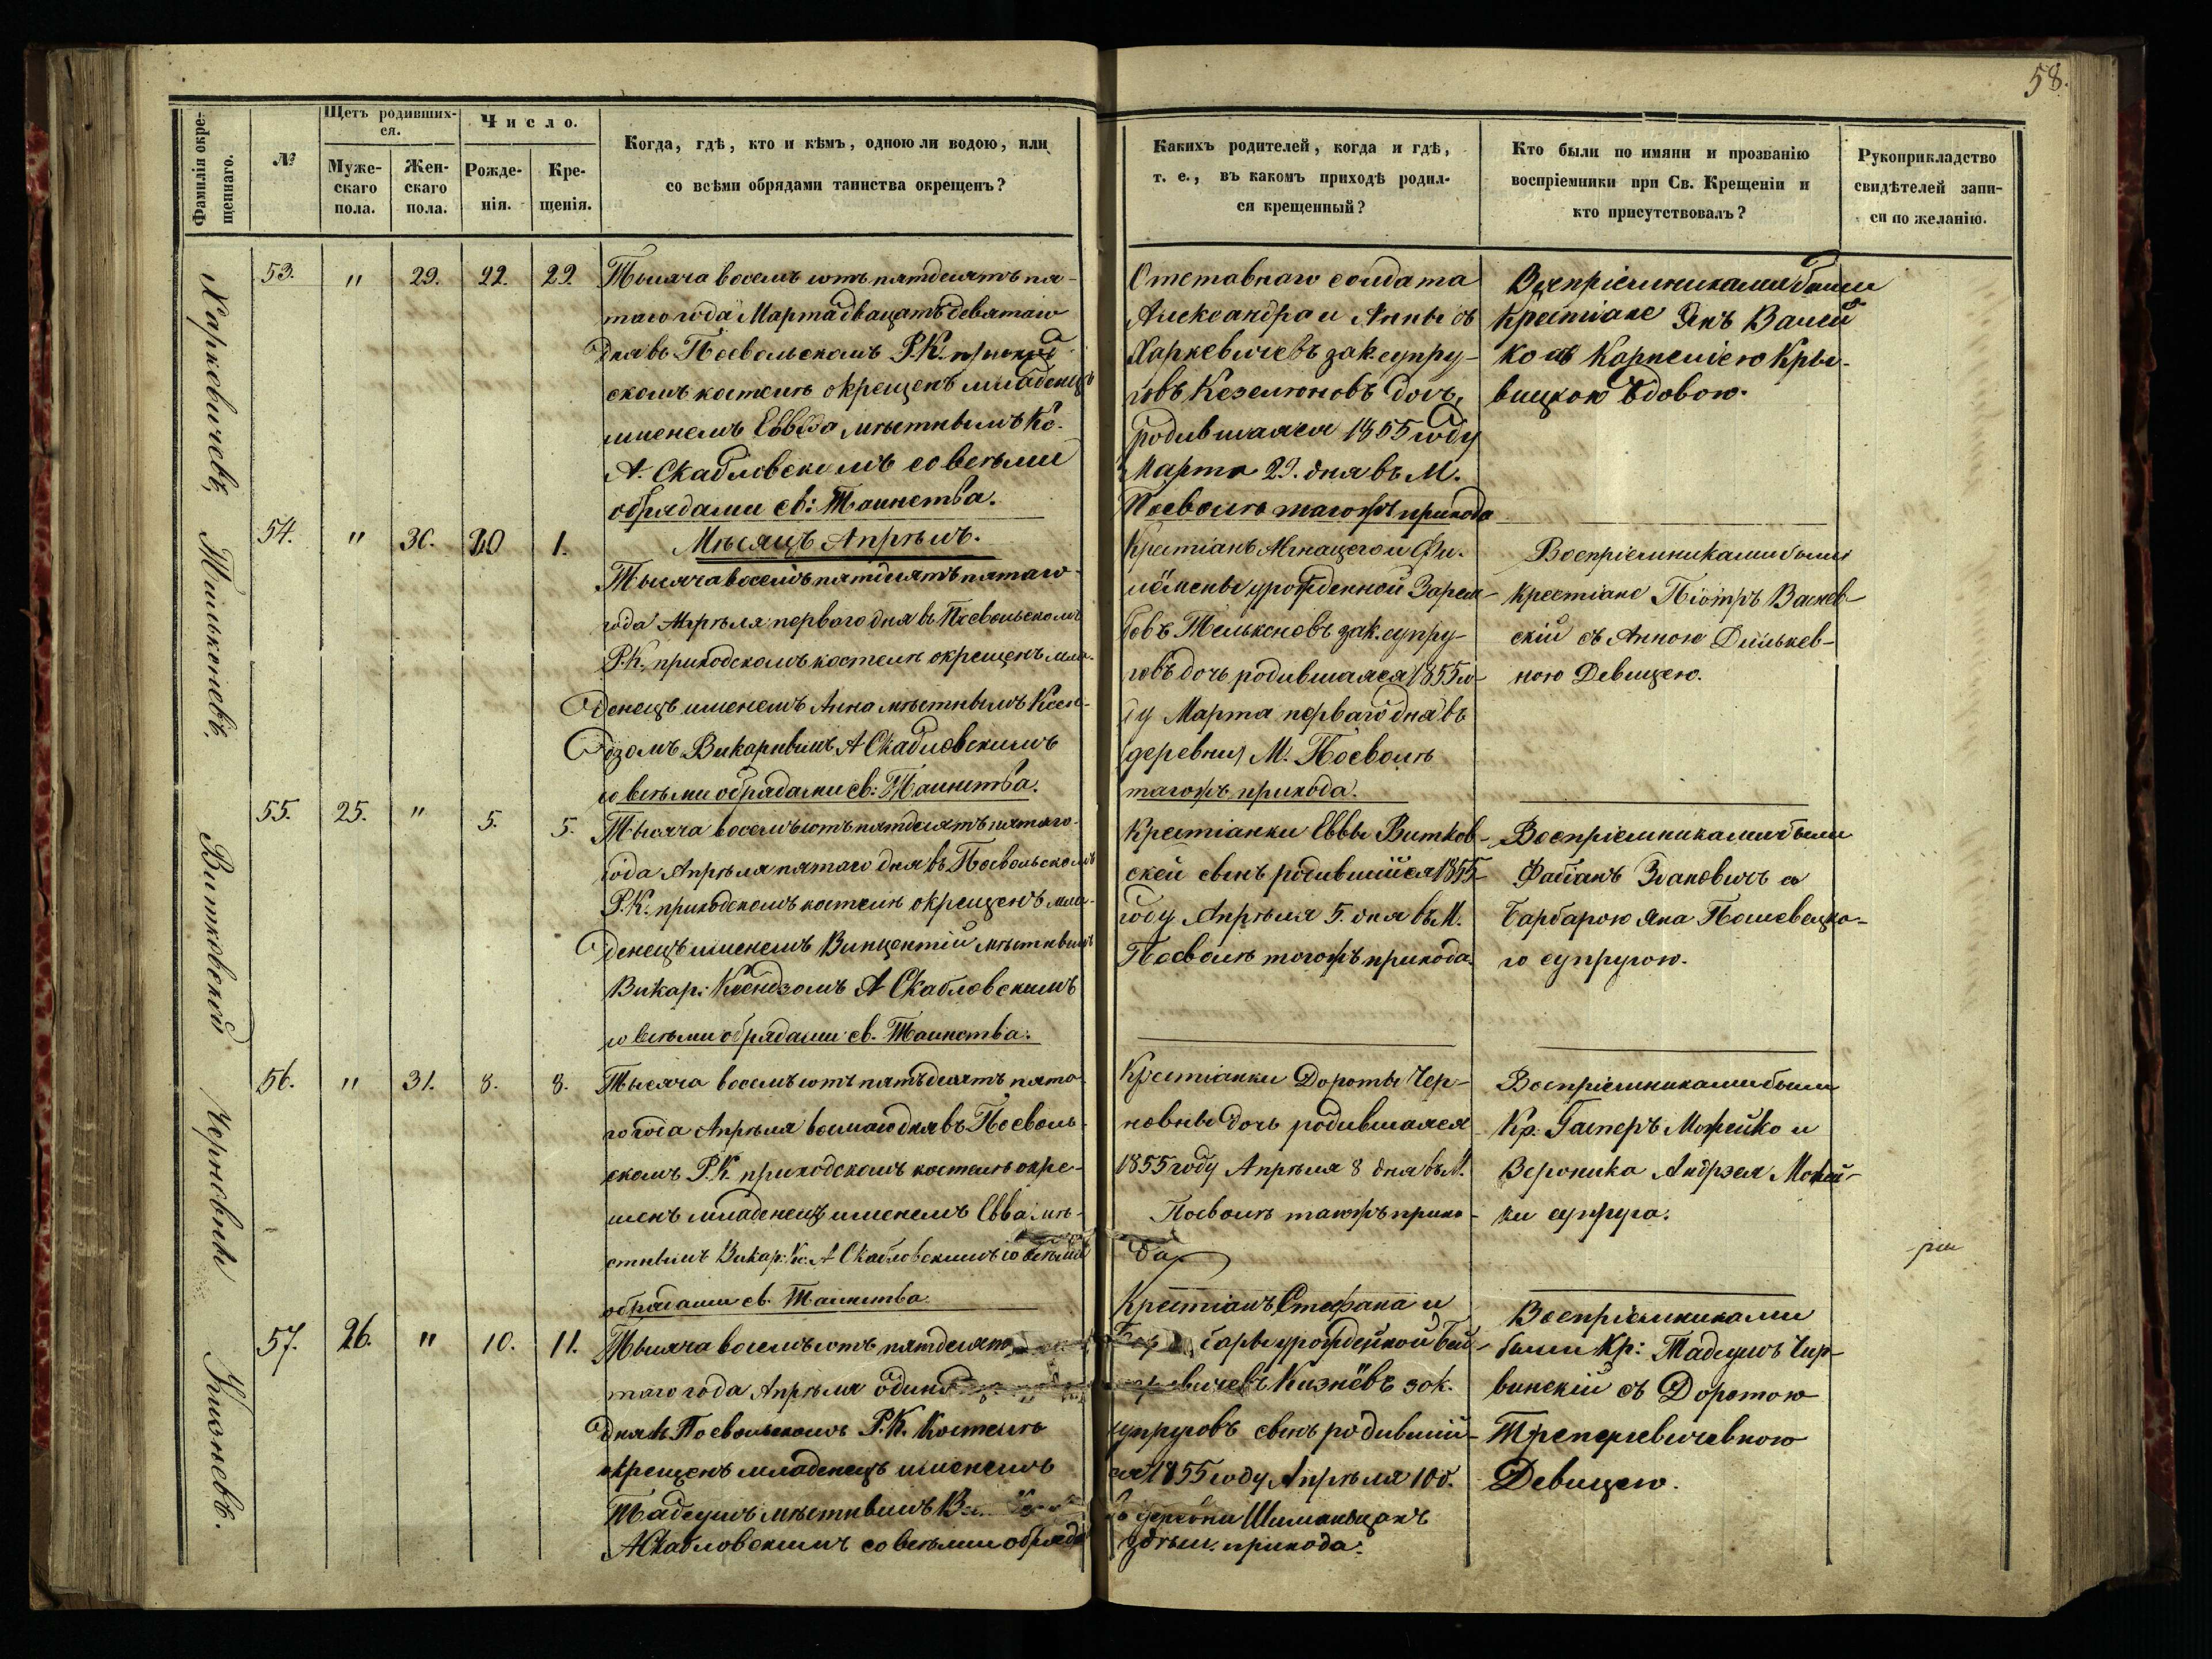 58.
Фамилія окре-
щеннаго.
№
Щетъ родивших-
ся.
Муже-
скаго
пола.
Жен-
скаго
пола.
Число.
Рожде-
нія.
Кре-
щенія.
Когда, гдѣ, кто и кѣмъ, одною ли водою, или
со всѣми обрядами таинства окрещенъ?
Какихъ родителей, когда и гдѣ,
т. е., въ какомъ приходѣ родил-
ся крещенный?
Кто были по имяни и прозванію
воспріемники при Св. Крещеніи и
кто присутствовалъ?
Рукоприкладство
свидѣтелей запи-
си по желанію.
Харковичевъ,
53. " 29. 22. 29.
Тысяча восемъ сотъ пятдесятъ пя-
таго года Марта двацатъ девятаго
дня въ Посвольскомъ Р.К. приход
скомъ костелѣ окрещенъ младенецъ
именемъ Евва мѣстнымъ Кс.
А. Скабловскимъ со всѣми
обрядами св: Таинства.
Отставнаго солдата
Александра и Анны съ
Харкевичевъ зак супру-
говъ дочь,
родившаяся 1855 году
Марта 29. дня въ М.
Посволѣ тогожъ прихода
Воспріемниками были
Крестіане Янъ Валей
ко съ Карнеліею Кры-
вицкою вдовою.
Тильконевъ,
54. " 30. 20 1.
Мѣсяцъ Апрѣль.
Тысяча восемъ пятдесятъ пятаго
года Апрѣля перваго дня въ Посвольскомъ
Р.К. приходскомъ костелѣ окрещенъ мла-
денецъ именемъ Анна мѣстнымъ Ксен-
дзомъ Викарнымъ А Скабловскимъ
со всѣми обрядами св: Таинства.
Крестіанъ Игнацего и Фи-
лёмены урожденной Зарем-
бовъ Тельконовъ зак. супру-
говъ дочь родившаяся 1855 го-
ду Марта перваго дня въ
деревни М. Посволѣ
тагожъ прихода.
Воспріемниками были
крестіане Піотръ Васнев-
скій съ Анною Дилькев-
ною Девицею.
Витковскій
55. 25. " 5. 5.
Тысяча восемъ сотъ пятдесятъ пятаго
года Апрѣля пятаго дня въ Посвольскомъ
Р.К. приходскомъ костелѣ окрещенъ мла-
денецъ именемъ Винцентій мѣстнымъ
Викар: Ксендзомъ А Скабловскимъ
со всѣми обрядами св. Таинства.
Крестіанки Еввы Витков-
ской сынъ родившійся 1855
году Апрѣля 5. дня въ М.
Посволѣ тогожъ прихода.
Воспріемниками были
Фабіанъ съ
Барбарою Яна Пошевецка-
го супругою.
Черновны
56. " 31. 8. 8.
Тысяча восемъ сотъ пятьдесятъ пята-
го года Апрѣля восмаго дня въ Посволь-
скомъ Р.К. приходскомъ костелѣ окре-
щенъ младенецъ именемъ Евва мѣ-
стнымъ Викар: Кс. А Скабловскимъ со всѣми
обрядами св. Таинства.
Крестіанки Дороты Чер-
новны дочь родившаяся
1855 году Апрѣля 8 дня въ М.
Посволѣ тагожъ прихо-
да
Воспріемниками были
Кр. Гасперъ Можейко и
Вероника Андрэея Можей-
ки супруга.
Кизневъ.
57. 26. " 10. 11.
Тысяча восемъ сотъ пятдесять
таго года Апрѣля одина
дня въ Посвольскомъ Р.К. Костелѣ
окрещенъ младенецъ именемъ
Тадеушъ мѣстнымъ
А Скабловскимъ со всѣми обряда
Крестіанъ Стефана и
бары урожденной
вичевъ Кизнёвъ зак.
супруговъ сынъ родившій-
ся 1855 году Апрѣля 10 д.
деревни Шиманцахъ
здѣш. прихода.
Воспріемниками
были Кр: Тадеушъ Чир-
винскій съ Доротою
Девицею.